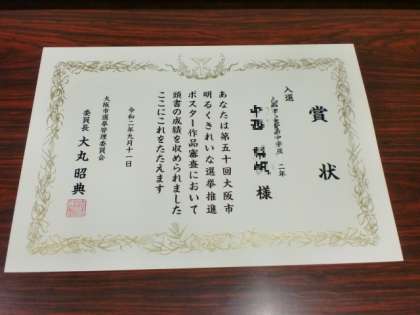 賞状
入選
中学校 二年
中西 様
あなたは第五十回大阪市
明るくきれいな選挙推進
ポスター作品審査において
頭書の成績を収められました
ここにこれをたたえます
令和二年九月十一日
大阪市選挙管理委員会
委員長 大丸昭典